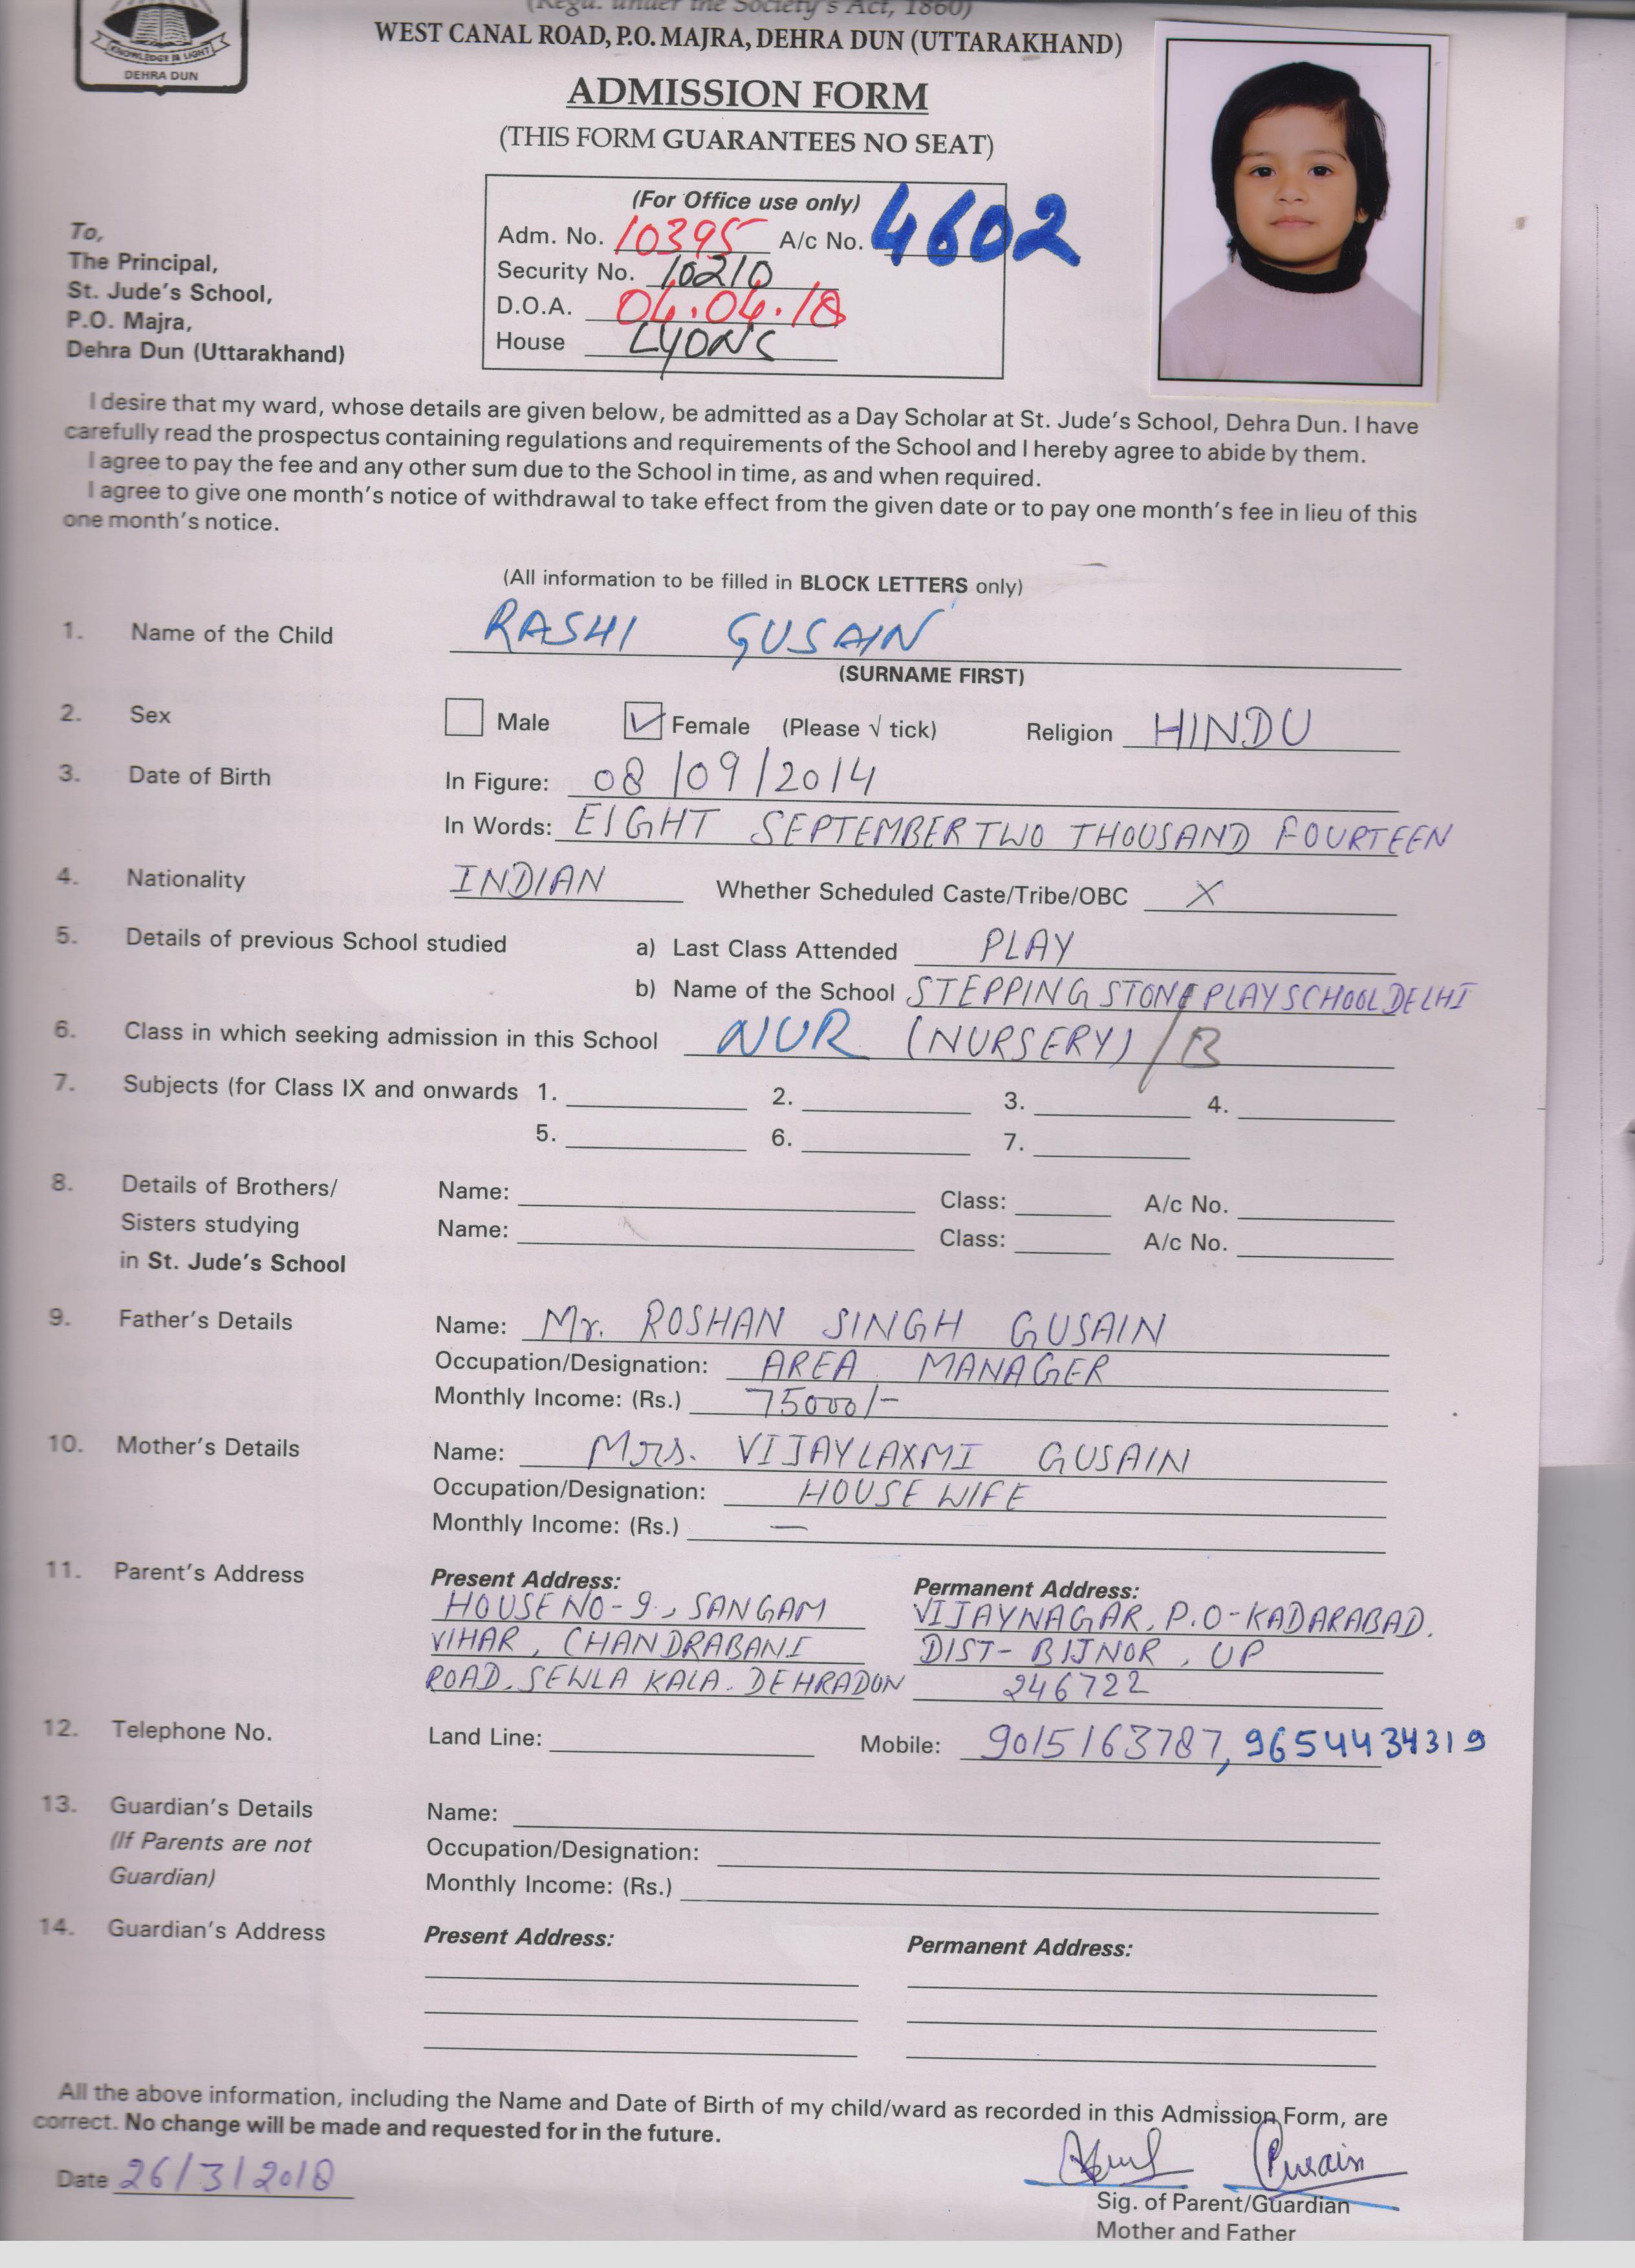 (Regd. under the Society's Act, 1860)
WEST CANAL ROAD, P.O. MAJRA, DEHRA DUN (UTTARAKHAND)
KNOWLEDGE IS LIGHT
DEHRA DUN
ADMISSION FORM
(THIS FORM GUARANTEES NO SEAT)
(For Office use only)
Adm. No. 10395 A/c No. 4602
Security No. 10210
D.O.A. 04.04.18
House LYONS
To,
The Principal,
St. Jude's School,
P.O. Majra,
Dehra Dun (Uttarakhand)
I desire that my ward, whose details are given below, be admitted as a Day Scholar at St. Jude's School, Dehra Dun. I have
carefully read the prospectus containing regulations and requirements of the School and I hereby agree to abide by them.
I agree to pay the fee and any other sum due to the School in time, as and when required.
I agree to give one month's notice of withdrawal to take effect from the given date or to pay one month's fee in lieu of this
one month's notice.
(All information to be filled in BLOCK LETTERS only)
1. Name of the Child RASHI GUSAIN
(SURNAME FIRST)
2. Sex Male Female (Please √ tick) Religion HINDU
3. Date of Birth In Figure: 08/09/2014
In Words: EIGHT SEPTEMBER TWO THOUSAND FOURTEEN
4. Nationality INDIAN Whether Scheduled Caste/Tribe/OBC X
5. Details of previous School studied a) Last Class Attended PLAY
b) Name of the School STEPPING STONE PLAY SCHOOL DELHI
6. Class in which seeking admission in this School NUR (NURSERY) / B
7. Subjects (for Class IX and onwards 1. 2. 3. 4.
5. 6. 7.
8. Details of Brothers/ Name: Class: A/c No.
Sisters studying Name: Class: A/c No.
in St. Jude's School
9. Father's Details Name: Mr. ROSHAN SINGH GUSAIN
Occupation/Designation: AREA MANAGER
Monthly Income: (Rs.) 75000/-
10. Mother's Details Name: Mrs. VIJAYLAXMI GUSAIN
Occupation/Designation: HOUSE WIFE
Monthly Income: (Rs.) —
11. Parent's Address Present Address: Permanent Address:
HOUSE NO-9, SANGAM VIJAYNAGAR, P.O-KADARABAD.
VIHAR, CHANDRABANI DIST- BIJNOR, UP
ROAD. SEWLA KALA. DEHRADON 246722
12. Telephone No. Land Line: Mobile: 9015163787, 9654434319
13. Guardian's Details Name:
(If Parents are not Occupation/Designation:
Guardian) Monthly Income: (Rs.)
14. Guardian's Address Present Address: Permanent Address:
All the above information, including the Name and Date of Birth of my child/ward as recorded in this Admission Form, are
correct. No change will be made and requested for in the future.
Date 26/3/2018
Sig. of Parent/Guardian
Mother and Father